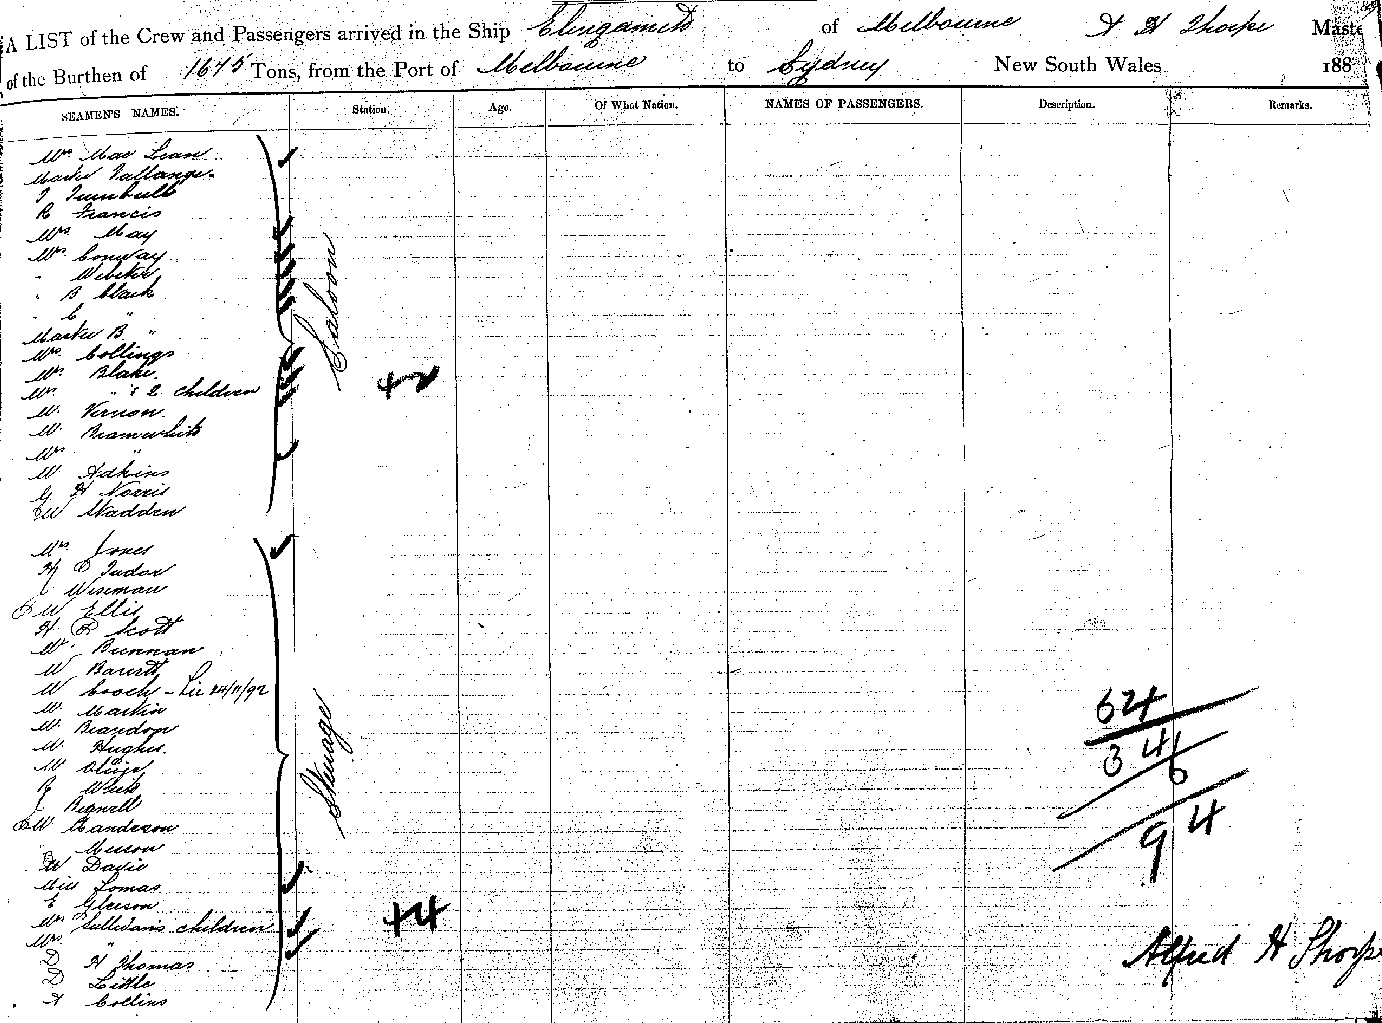 A LIST of the Crew and Passengers arrived in the Ship Elingamite of Melbourne A H Thorpe Maste
of the Burthen of 1675 Tons, from the Port of Melbourne to Sydney New South Wales 188
SEAMEN'S NAMES. Station. Age. Of What Nation. NAMES OF PASSENGERS. Description. Remarks.
Mrs Mac Lean
Master Vallange
T Turnbull
R Francis
Mrs May
Mrs Conway
" Webster
" B Clark
" C "
Master B "
Mrs Collings
Mr Blake
Mrs " & 2 children
M Vernon
M Bramwhite
Mrs "
M Adkins
G H Norris
W Madden
Saloon
+2
Mrs Jones
H P Tudor
Wiseman
W Ellis
H R Scott
M Brennan
M Barrett
M Gooch - Lic 24/11/92
M Martin
M Brandon
M Hughes
M
R Week
Bignell
W Sanderson
Meeson
W Davie
Miss Lomas
E Gleeson
Mrs Sullivans children
Mrs "
D H Thomas
D Little
A Collins
Steerage
+4
624
3 41
6
94
Alfred H Thorpe